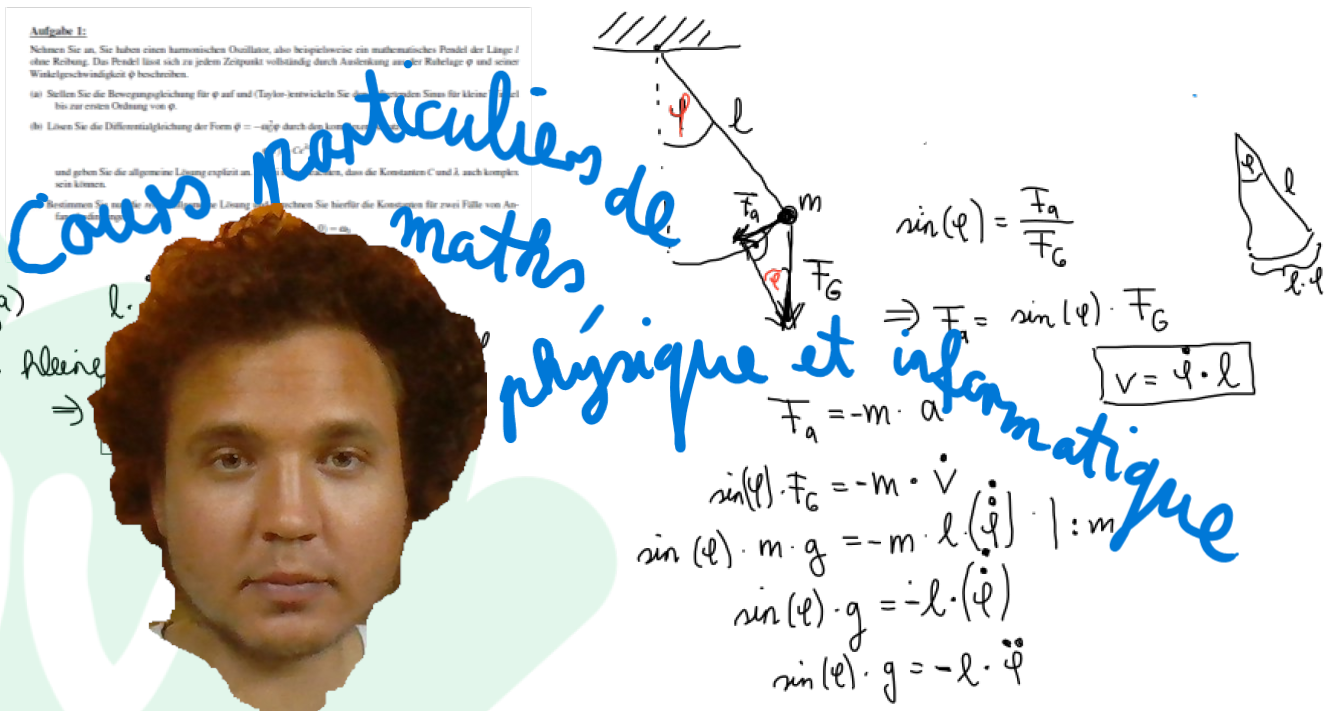 Aufgabe 1:
Nehmen Sie an, Sie haben einen harmonischen Oszillator, also beispielsweise ein mathematisches Pendel der Länge l
ohne Reibung. Das Pendel lässt sich zu jedem Zeitpunkt vollständig durch Auslenkung aus der Ruhelage φ und seiner
Winkelgeschwindigkeit φ̇ beschreiben.
(a) Stellen Sie die Bewegungsgleichung für φ auf und (Taylor-)entwickeln Sie Sinus für kleine
bis zur ersten Ordnung von φ.
(b) Lösen Sie die Differentialgleichung der Form φ̈ = −ω₀²φ durch den
und geben Sie die allgemeine Lösung explizit an. dass die Konstanten C und λ auch komplex
sein können.
Bestimmen Lösung Sie hierfür die Konstanten für zwei Fälle von An-
Cours particuliers de
maths
physique et informatique
a) l.
kleine
⇒
φ
l
m
F_a
φ
F_G
sin(φ) = F_a / F_G
⇒ F_a = sin(φ) · F_G
φ
l
l·φ
v = φ̇ · l
F_a = -m · a
sin(φ) · F_G = -m · v̇
sin(φ) · m · g = -m · l · (φ̇)˙ | : m
sin(φ) · g = -l · (φ̇)˙
sin(φ) · g = -l · φ̈